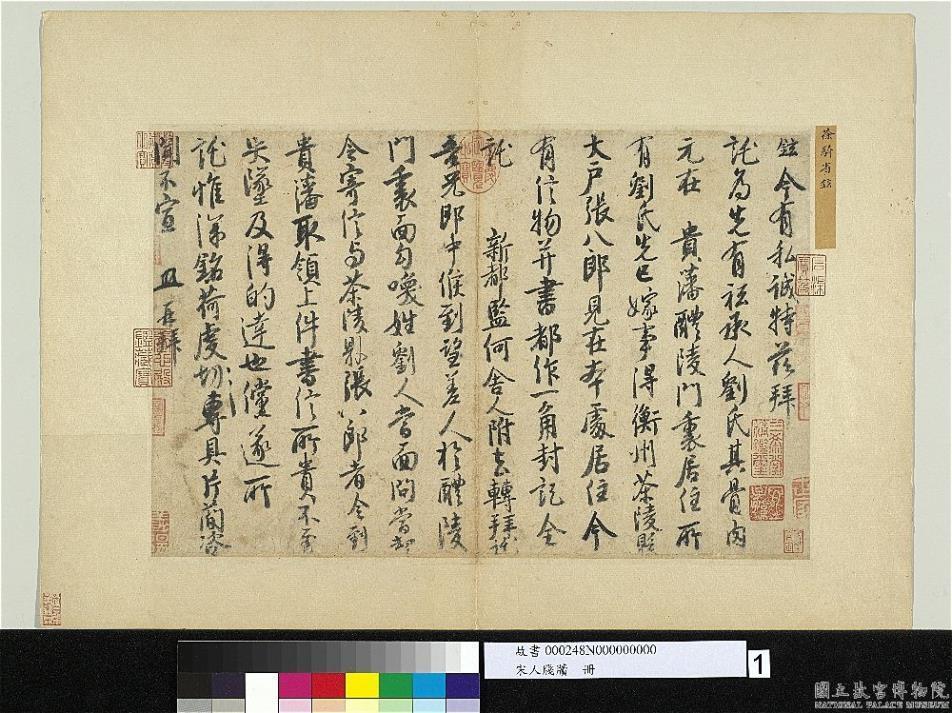 徐騎省鉉
鉉今有私誠特茲拜
託為先有祗承人劉氏其骨肉
元在 貴藩醴陵門裏居住所
有劉氏先已嫁事得衡州茶陵縣
大戶張八郎見在本處居住今
有信物并書都作一角封記全
託 新都監何舍人附去轉拜託
吾兄郎中候到望差人於醴陵
門裏面勾喚姓劉人當面問當却
令寄信與茶陵縣張八郎者令到
貴藩取領上件書信所貴不至
失墜及得的達也儻遂所
託惟深銘荷虔切虔切專具片簡咨
聞不宣 鉉再拜
故書 000248N000000000
宋人殘牘 冊
1
國立故宮博物院
NATIONAL PALACE MUSEUM